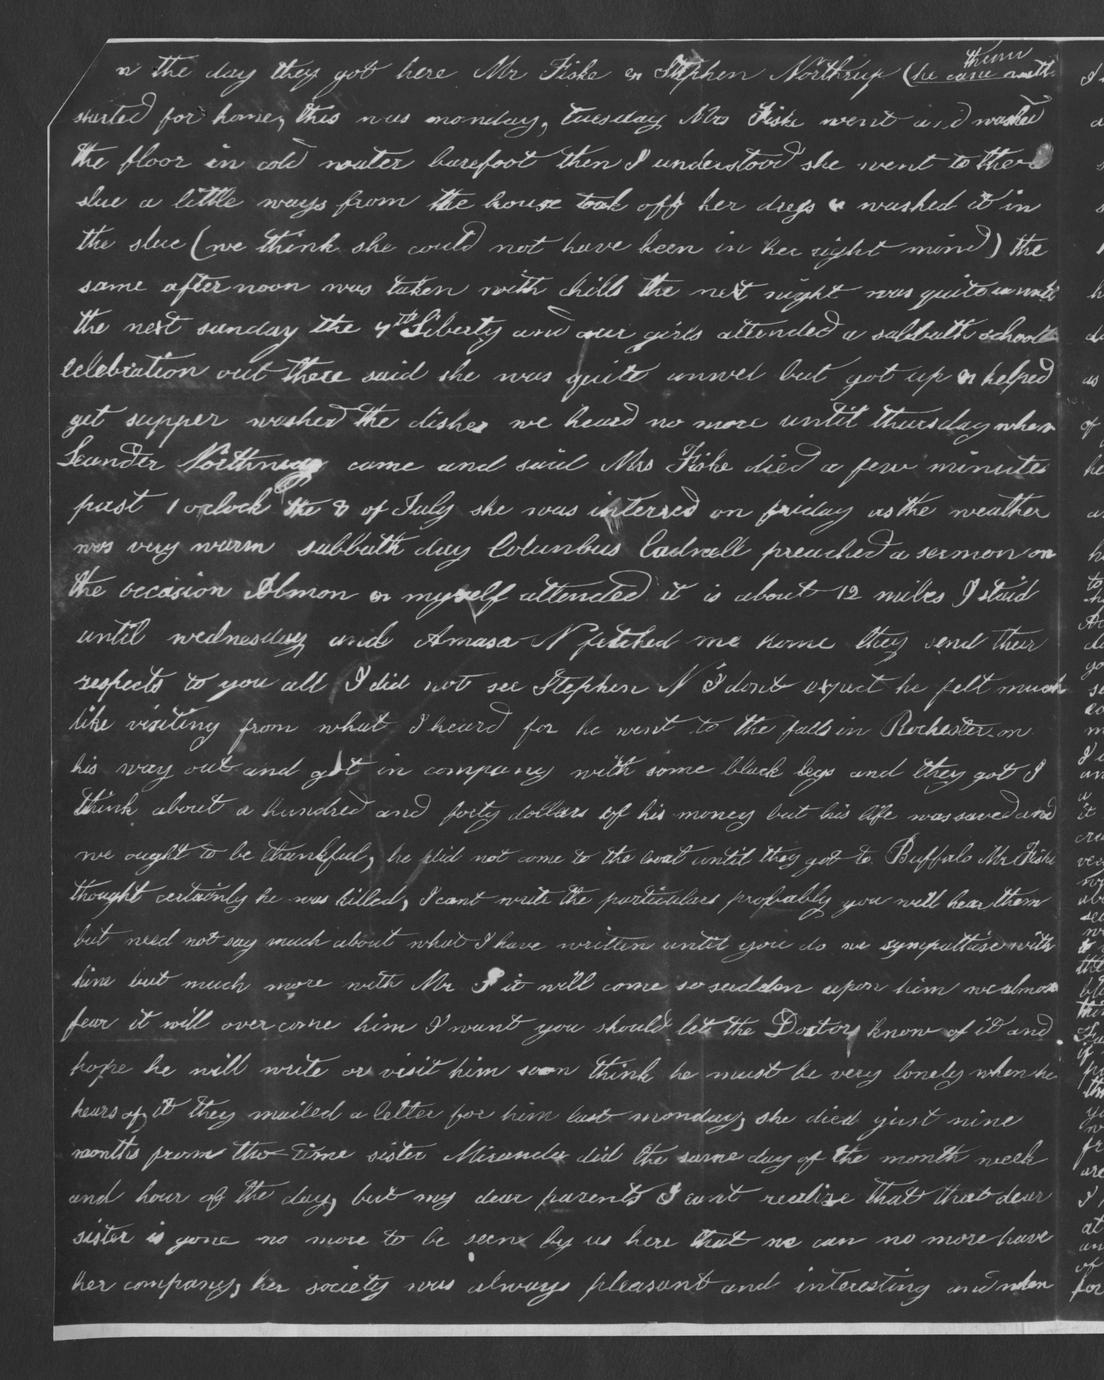 n the day they got here Mr Fiske & Stephen Northrup (he came with them
started for home, this was monday, tuesday Mrs Fiske went and washed
the floor in cold water barefoot then I understood she went to there
slue a little ways from the house took off her dress & washed it in
the slue (we think she could not have been in her right mind) the
same afternoon was taken with chills the next night was quite
the next sunday the 4th Liberty and our girls attended a sabbath school
celebration out there said she was quite unwel but got up & helped
get supper washed the dishes we heard no more until thursday when
Leander Northrup came and said Mrs Fiske died a few minutes
past 1 oclock the 8 of July she was interred on friday as the weather
was very warm sabbath day Columbus Cadwell preached a sermon on
the occasion Almon & myself attended it is about 12 miles I staid
until wednesday and Amasa N fetched me home they send their
respects to you all I did not see Stephen N I dont expect he felt much
like visiting from what I heard for he went to the falls in Rochester on
his way out and got in company with some black legs and they got I
think about a hundred and forty dollars of his money but his life was saved and
we ought to be thankful, he did not come to the boat until they got to Buffalo Mr Fiske
thought certainly he was killed, I cant write the particulars probably you will hear them
but need not say much about what I have written until you do we sympathise with
him but much more with Mr F it will come so sudden upon him we almost
fear it will over come him I want you should let the Doctor know of it and
hope he will write or visit him soon think he must be very lonely when he
hears of it they mailed a letter for him last monday, she died just nine
months from the time sister Miranda did the same day of the month week
and hour of the day, but my dear parents I cant realize that that dear
sister is gone no more to be seen by us here that we can no more have
her company, her society was always pleasant and interesting and when